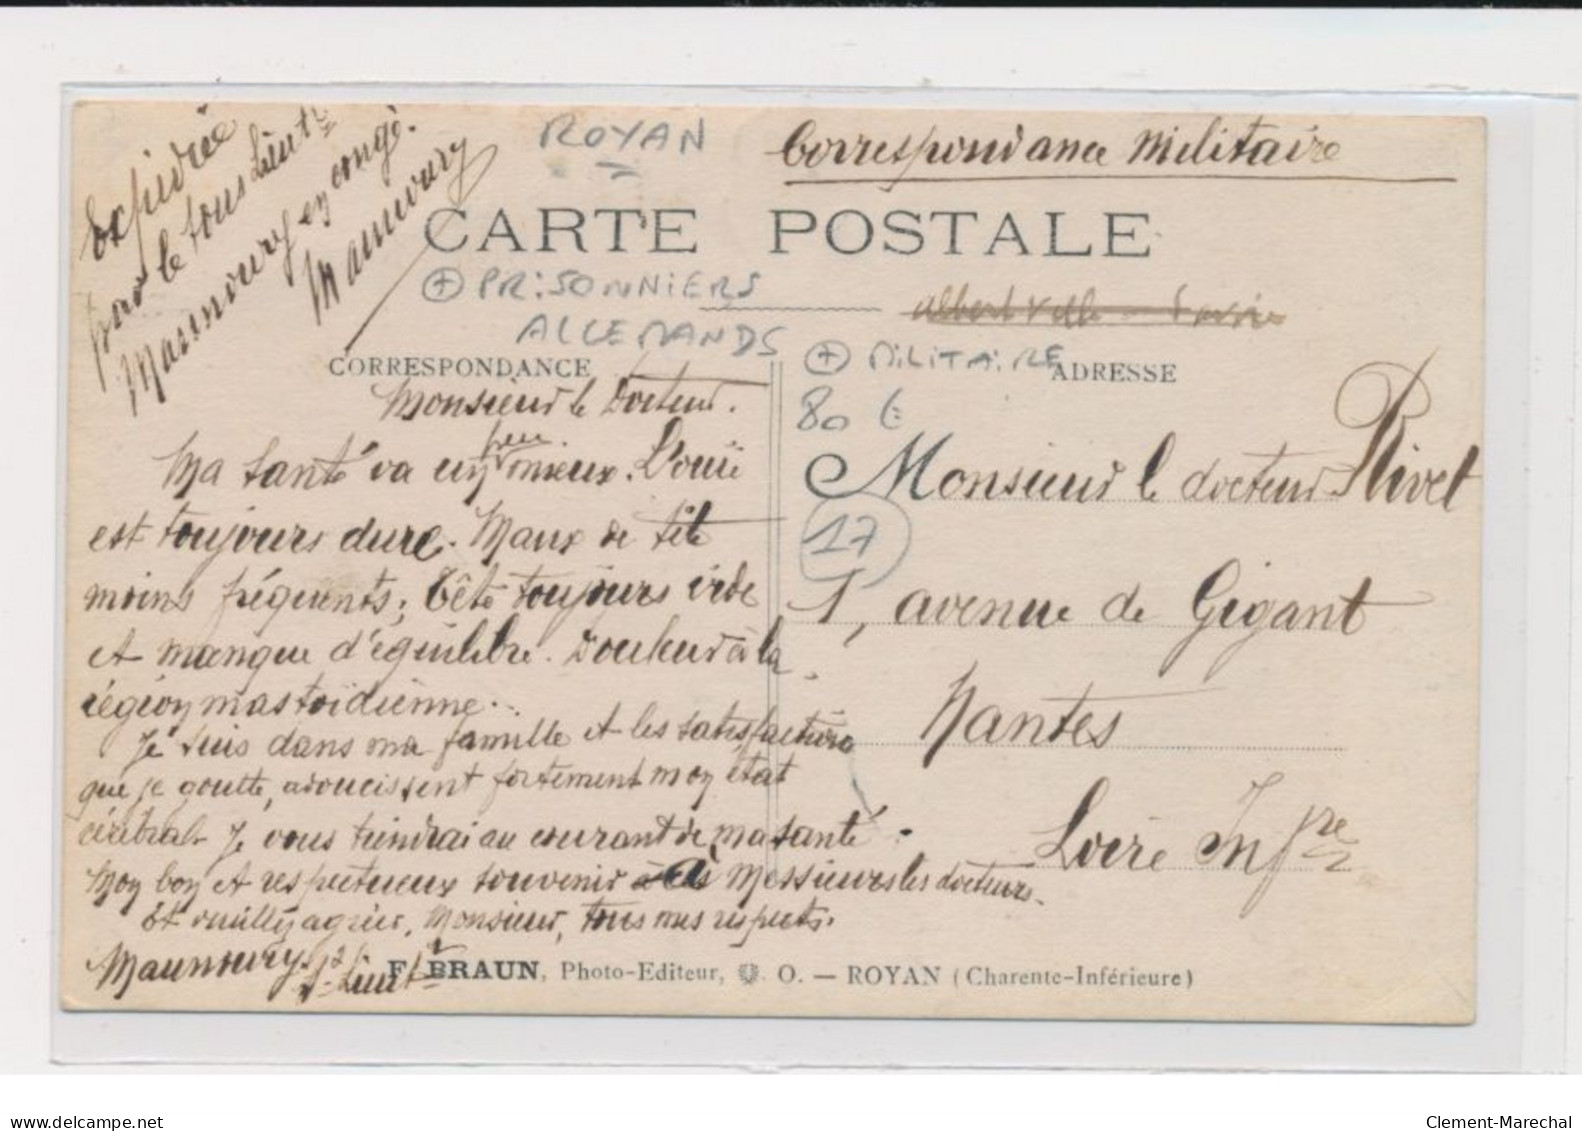 Expédiée
par le sous Lieut
Maunoury en congé.
Maunoury
ROYAN
Correspondance Militaire
CARTE POSTALE
+ PRISONNIERS
ALLEMANDS
Albertville - Savoie
CORRESPONDANCE
+ MILITAIRE
ADRESSE
80 €
17
Monsieur le Docteur.
Ma santé va un peu mieux. L'ouïe
est toujours dure. Maux de tête
moins fréquents; Tête toujours vide
et manque d'équilibre. Douleur à la
région mastoïdienne...
Je suis dans ma famille et les satisfactions
que je goutte, adoucissent fortement mon état
cérébral. Je vous tiendrai au courant de ma santé.
Mon bon et respectueux souvenir à Messieurs les docteurs.
Et veuillez agréer, Monsieur, tous mes respects.
Maunoury. S. Lieut
Monsieur le docteur Rivet
1, avenue de Gigant
Nantes
Loire Infre
F. BRAUN, Photo-Editeur, O. — ROYAN (Charente-Inférieure)
www.delcampe.net
Clement-Marechal